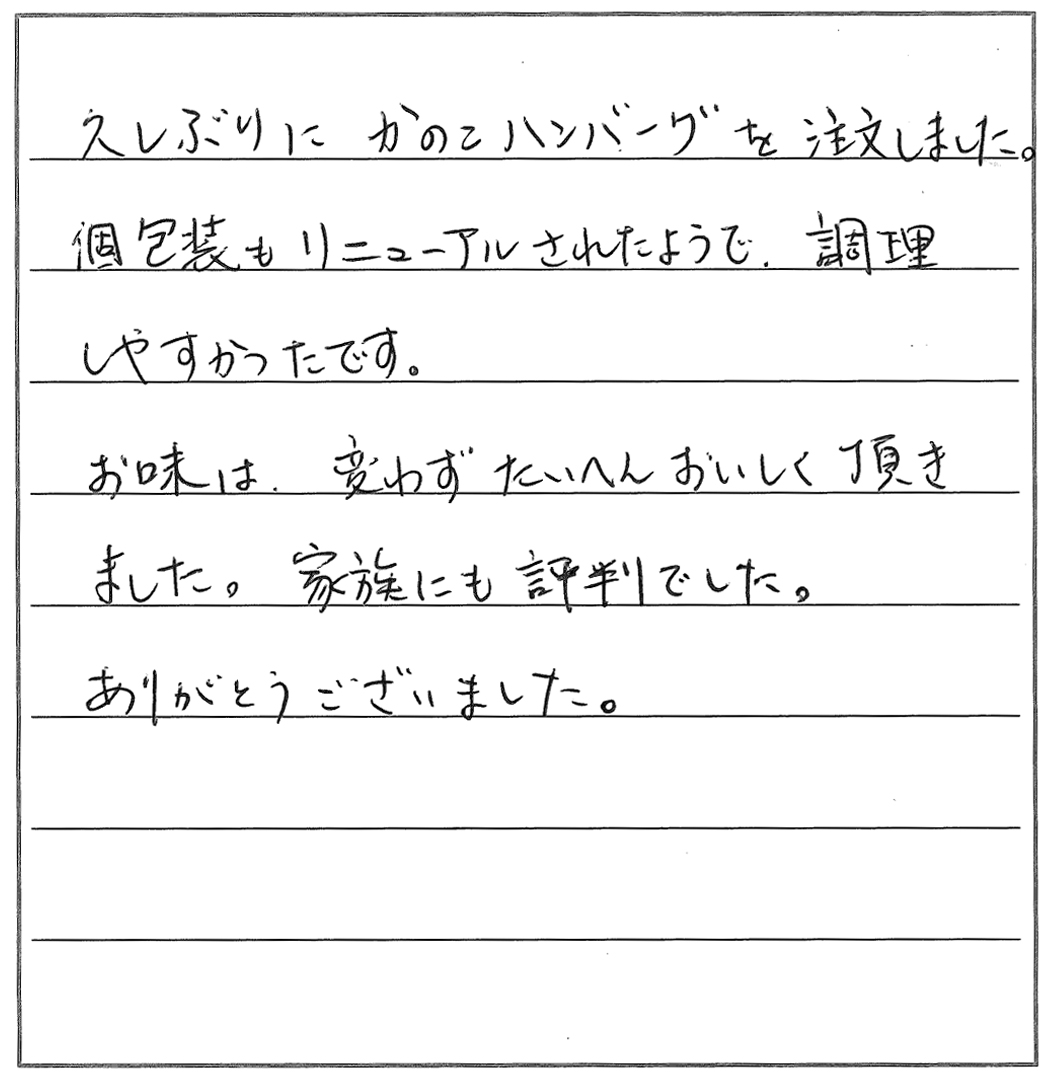 久しぶりに かのこハンバーグを注文しました。
個包装もリニューアルされたようで、調理
しやすかったです。
お味は、変わず たいへん おいしく 頂き
ました。家族にも 評判でした。
ありがとうございました。